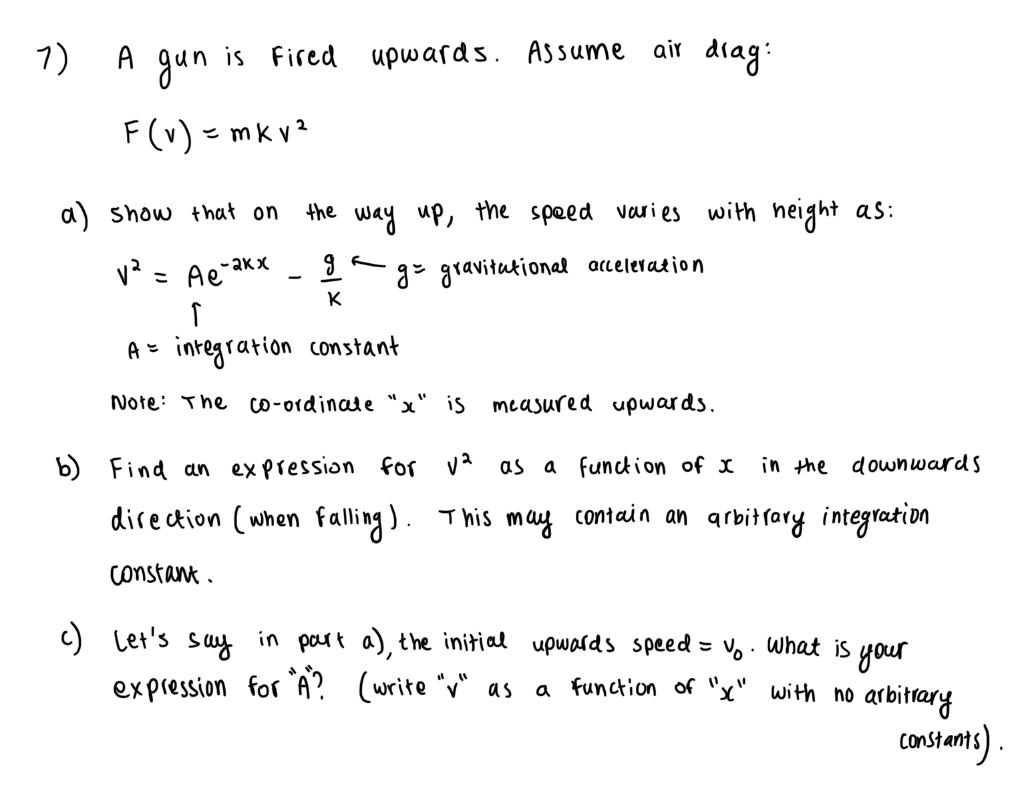 7) A gun is fired upwards. Assume air drag:
F(v) = mkv²
a) show that on the way up, the speed varies with height as:
v² = Ae^{-2kx} - g/k ← g = gravitational acceleration
↑
A = integration constant
Note: The co-ordinate "x" is measured upwards.
b) Find an expression for v² as a function of x in the downwards
direction (when falling). This may contain an arbitrary integration
constant.
c) Let's say in part a), the initial upwards speed = v₀. What is your
expression for "A"? (write "v" as a function of "x" with no arbitrary
constants).